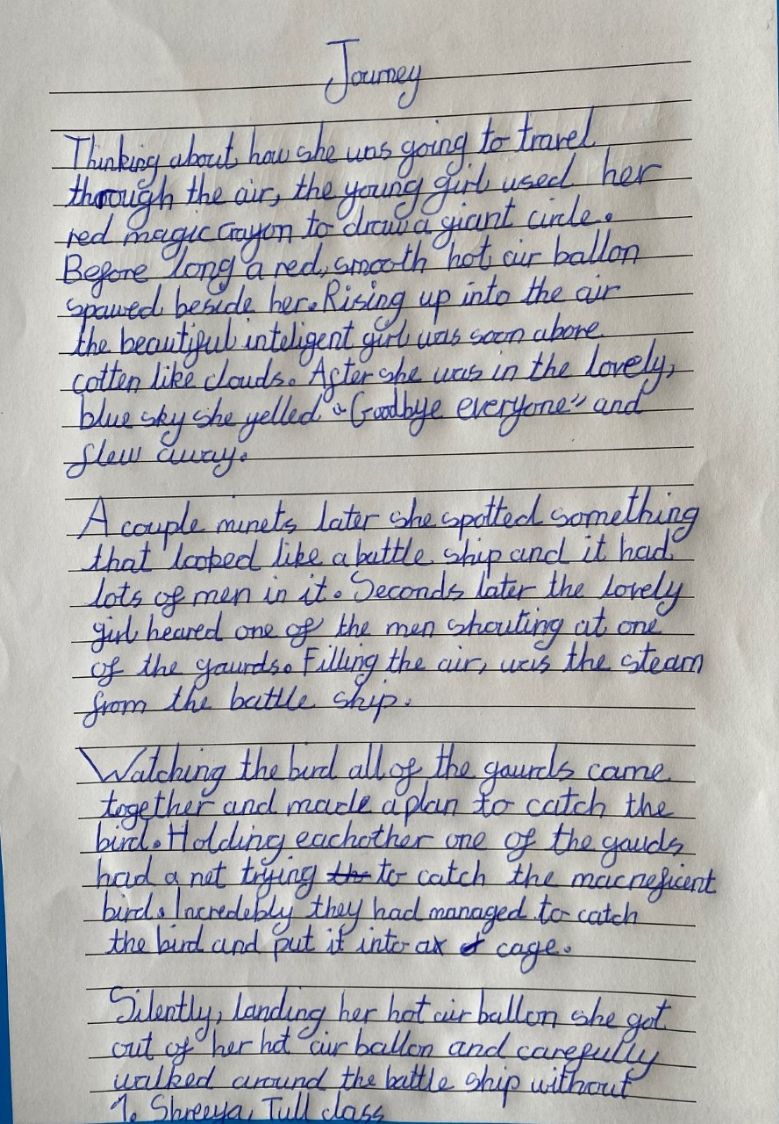 Journey
Thinking about how she was going to travel
through the air, the young girl used her
red magic crayon to draw a giant circle.
Before long a red, smooth hot air ballon
spawed beside her. Rising up into the air
the beautiful inteligent girl was soon above
cotten like clouds. After she was in the lovely,
blue sky she yelled "Goodbye everyone" and
flew away.
A couple minets later she spotted something
that looked like a battle ship and it had
lots of men in it. Seconds later the lovely
girl heared one of the men shouting at one
of the gaurds. Filling the air, was the steam
from the battle ship.
Watching the bird all of the gaurds came
together and made a plan to catch the
bird. Holding eachother one of the gauds
had a net trying to catch the macneficent
bird. Incredebly they had managed to catch
the bird and put it into a cage.
Silently, landing her hot air ballon she got
out of her hot air ballon and carefully
walked around the battle ship without
1. Shreeya, Tull class